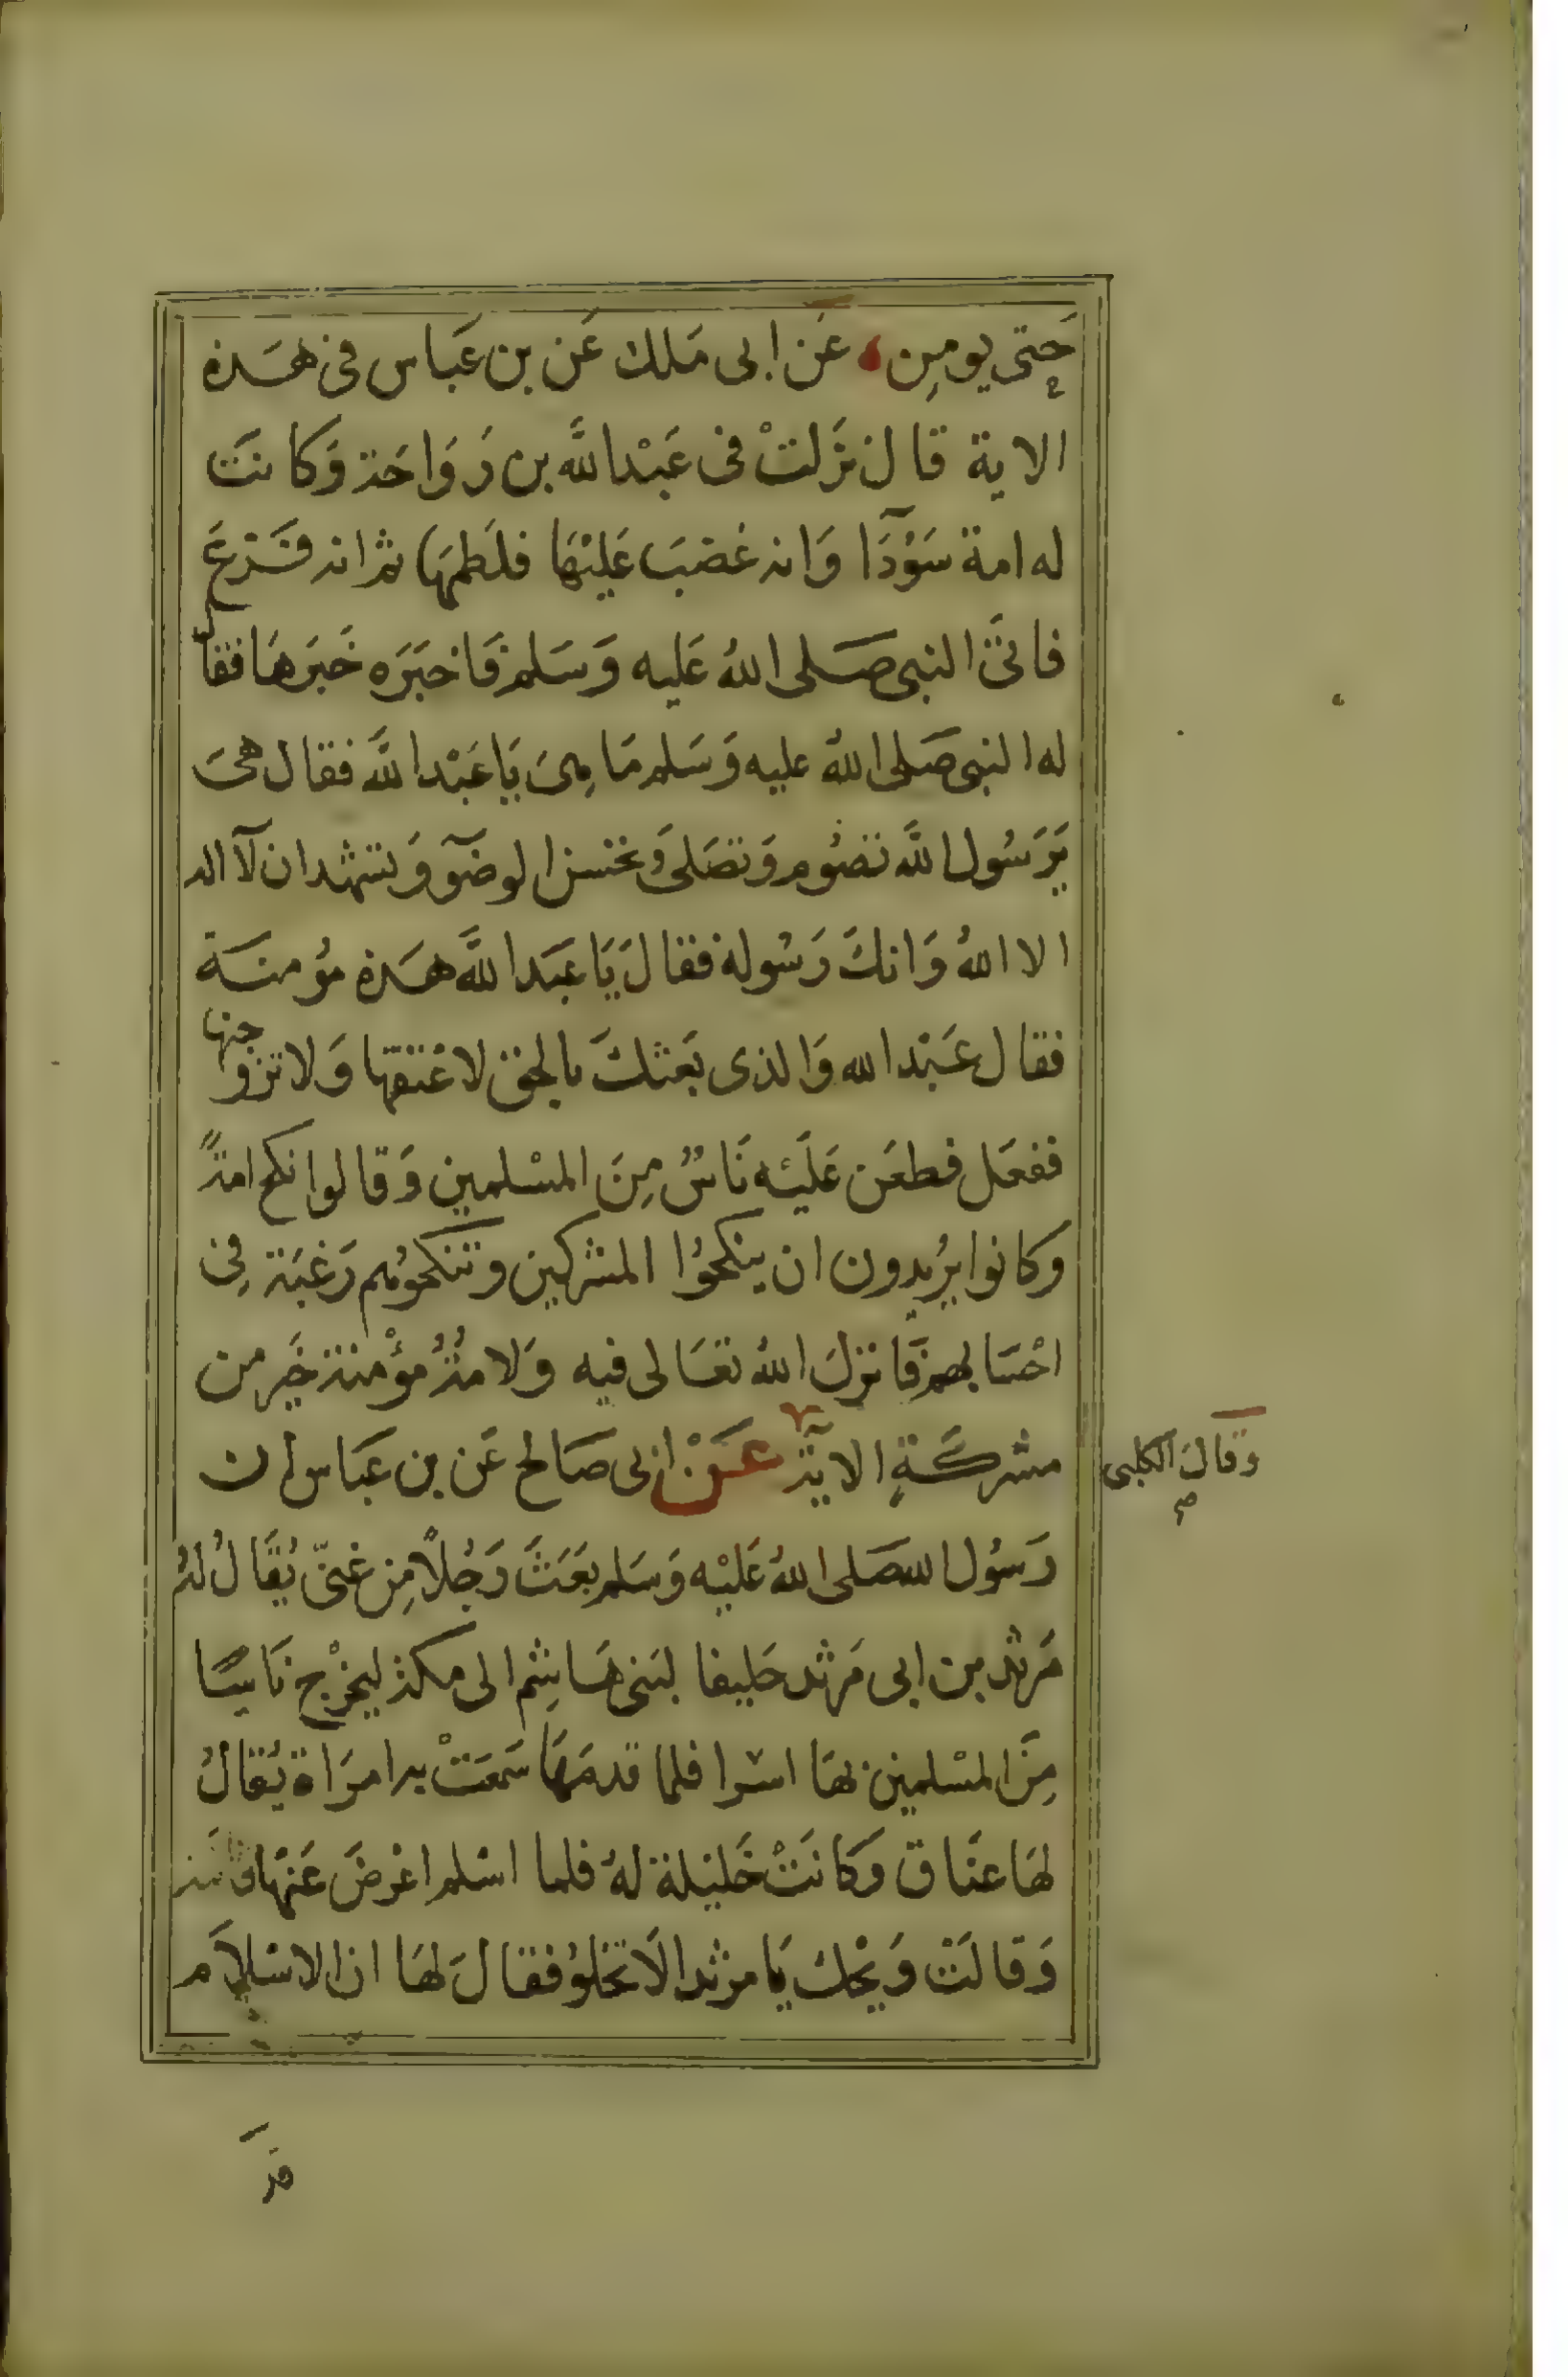 حَتى يومِن عَن ابى مَلك عَن بن عَباس فى هَذه
الاية قال نَزلتْ فى عَبْدالله بن رَوَاحَة وَكانتَ
له امة سَوْدَآ وَانه غضبَ عَليْهَا فلطمهَا ثم انه فَزعَ
فاتىَ النبى صَلى اللهُ عَليه وَسَلم فَاخبَرَه خَبَرهَا فقال
له النبى صَلى اللهُ عليه وَسَلم مَا هِىَ يَا عَبْدالله فقال هىَ
يَرَسُول الله تصُوم وَتصَلى وَتحسن الوضوَٓ وَتشهد ان لآ اله
الا اللهُ وَانكَ رَسُوله فقالَ يَا عبَدالله هَذه مؤمنَة
فقال عَبْدالله وَالذى بَعثكَ بالحق لاعْتقها وَلاتزوجنها
ففعَل فطعَن عَليْه نَاسٌ مِنَ المسْلمين وَقالوا نكح امةً
وَكانوا يرُيدون ان ينكحُوا المشركين وَتنكحوُهم رَغبَة فِى
احْسَابهم فَانزلَ اللهُ تعَالى فيه وَلامَةٌ مؤْمنة خَير من
مشركَةٍ الايَة عَنْ ابى صَالح عَن بن عَبَاس ان
وَقالَ الكلبى
صح
رَسُول الله صَلى اللهُ عَليْه وَسَلم بَعَثَ رَجُلاً مِن غنىّ يُقَالُ لهُ
مَرثد بن ابى مَرثد حَليفا لبَنى هَاشِم الى مكة ليخرْج نَاسًا
مِنَ المسْلمين بهَا اسْرا فلما قدمَهَا سَمعَتْ به امرَاة يُقالُ
لهَا عنَاق وَكانَتْ خَليْلة لهُ فلما اسْلم اعْرضَ عَنْهَا فاتته
وَقالَتْ وَيْحك يَا مرثد الَا تخلوُ فقالَ لهَا ان الاسْلاَم
قد